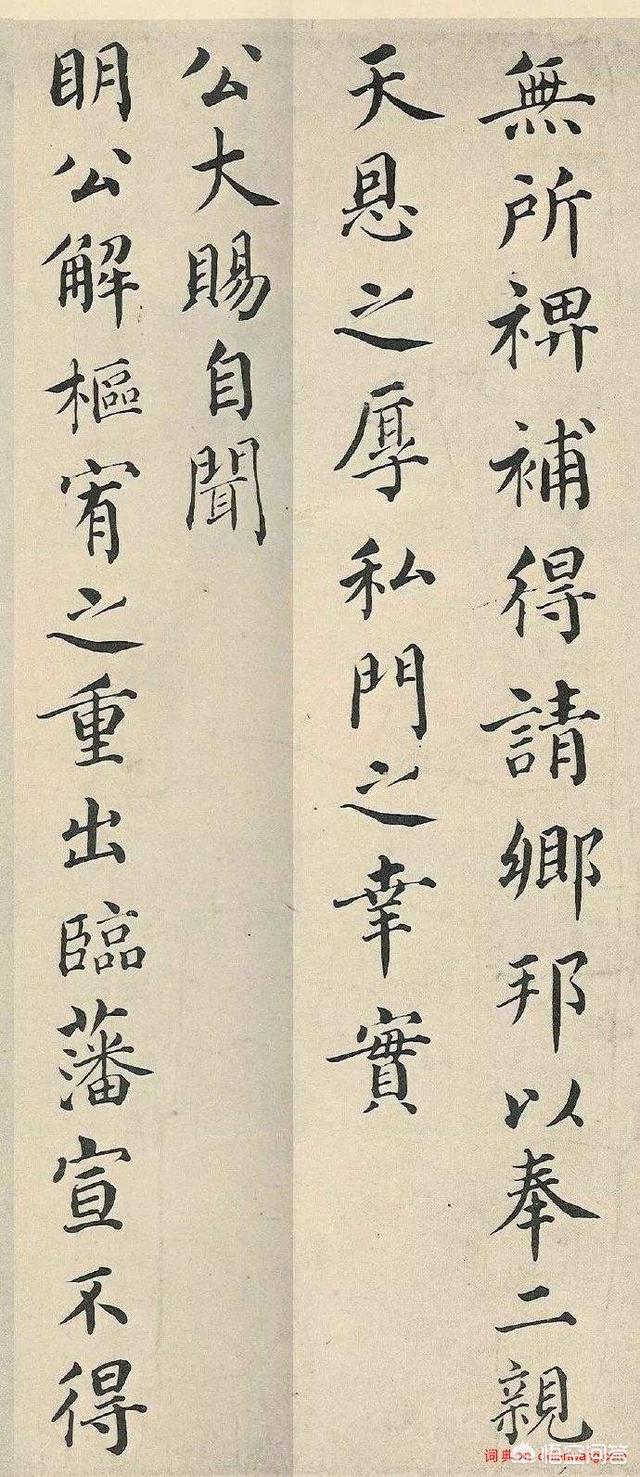 無所裨補得請鄉邦以奉二親
天恩之厚私門之幸實
公大賜自聞
明公解樞宥之重出臨藩宣不得
悟空问答